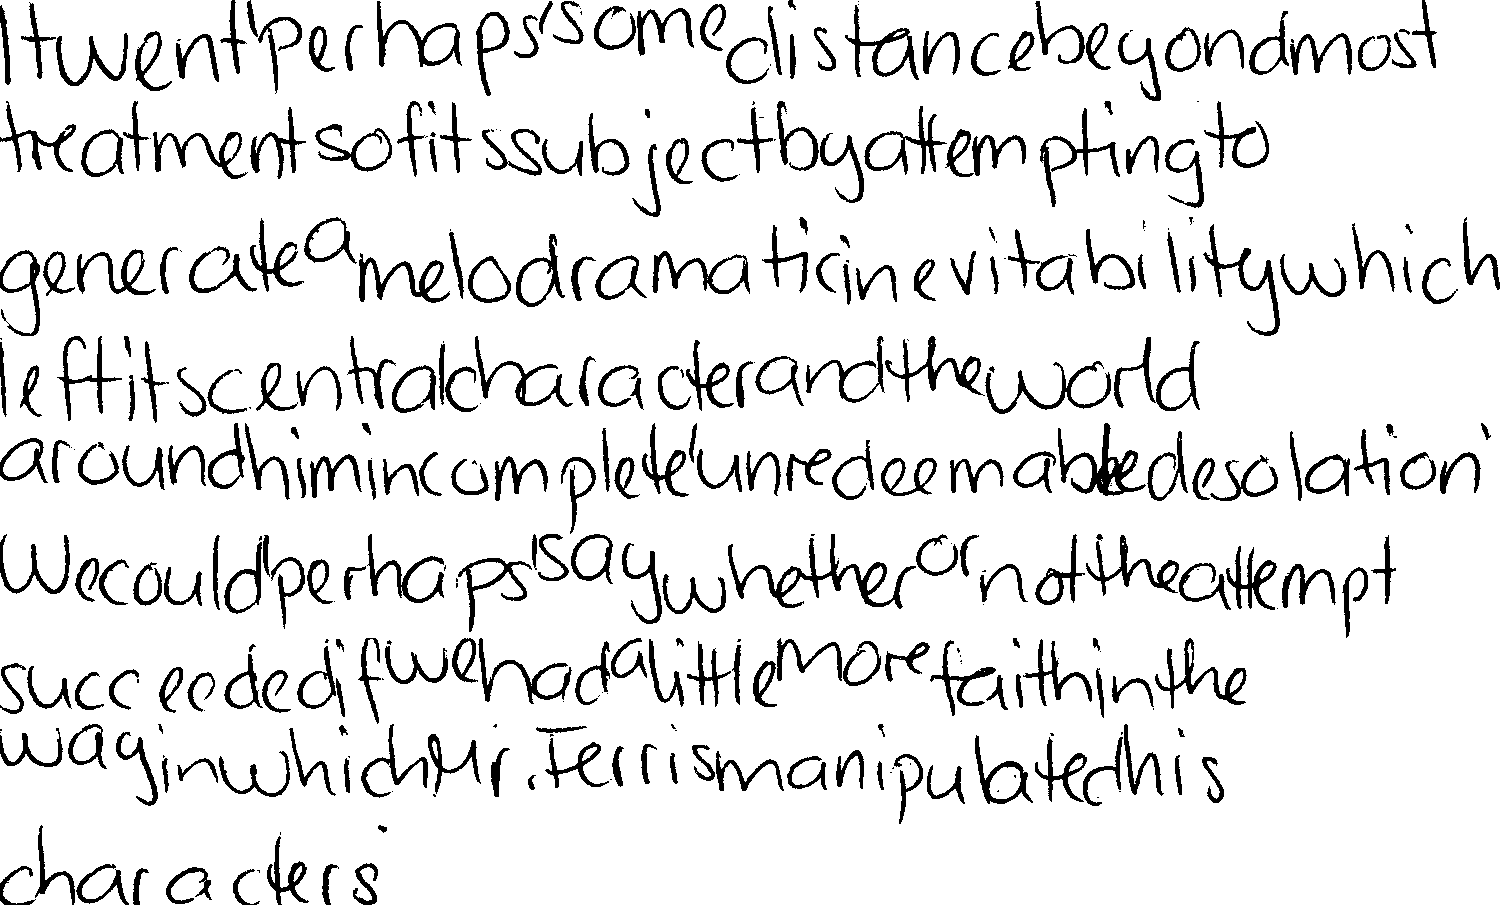 It went 'perhaps' some distance beyond most
treatments of its subject by attempting to
generate a melodramatic inevitability which
left its central character and the world
around him in complete 'unredeemable desolation'
We could 'perhaps' say whether or not the attempt
succeeded if we had a little more faith in the
way in which Mr. Ferris manipulated his
characters.